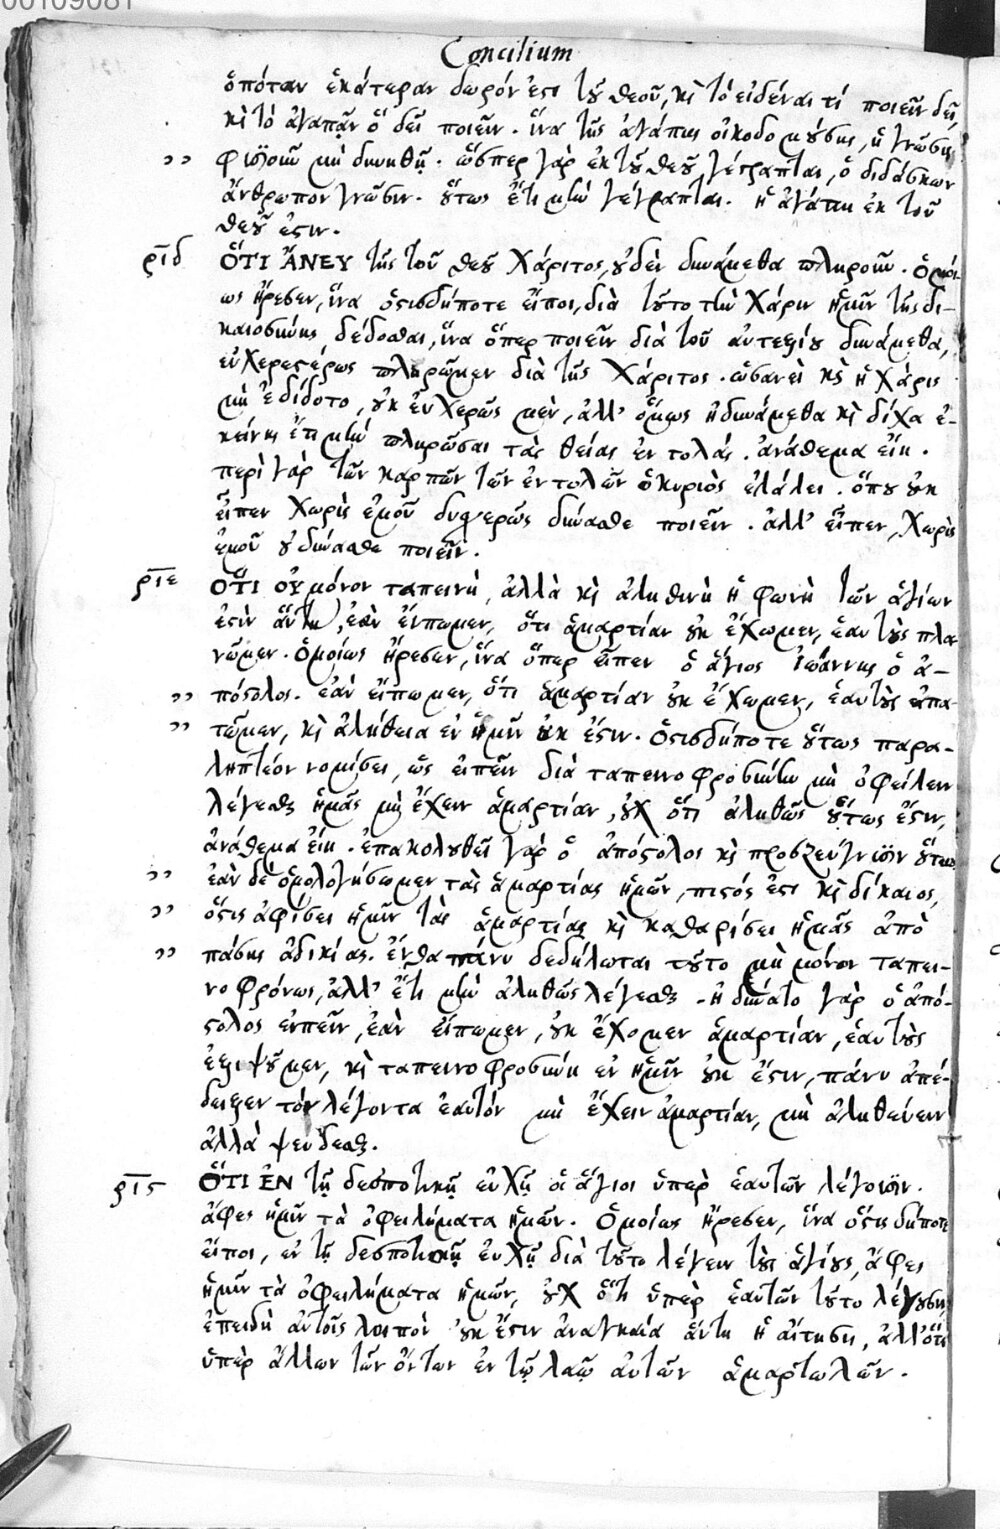 00109081
Concilium
ὁπόταν ἑκάτεραν δωρόν ἐστι τοῦ θεοῦ, κὶ τὸ εἰδέναι τί ποιεῖν δεῖ,
κὶ τὸ ἀγαπᾷν ὃ δεῖ ποιεῖν. ἵνα τῆς ἀγάπης οἰκοδομούσης, ἡ γνῶσις
" φισιοῖν μὴ δυνηθῇ. ὥσπερ γὰρ ἐκ τοῦ θεοῦ γέγραπται, ὁ διδάσκων
ἄνθρωπον γνῶσιν. οὕτως ἔτι μὴν γέγραπται. ἡ ἀγάπη ἐκ τοῦ
θεοῦ ἐστιν.
ριδ ὍΤΙ ἌΝΕΥ τῆς τοῦ θεοῦ χάριτος, οὐδὲν δυνάμεθα πληροῖν. ὁμοί-
ως ἤρεσεν, ἵνα ὁστισδήποτε εἴποι, διὰ τοῦτο τὴν χάριν ἡμῖν τῆς δι-
καιοσύνης δέδοσθαι, ἵνα ὅπερ ποιεῖν διὰ τοῦ αὐτεξίου δυνάμεθα,
εὐχερεστέρως πληρῶμεν διὰ τῆς χάριτος. ὡσανεὶ κὶ ἡ χάρις
μὴ ἐδίδοτο, οὐκ εὐχερῶς μὲν, ἀλλ' ὅμως ἠδυνάμεθα κὶ δίχα ἐ-
κείνης ἔτι μὴν πληρῶσαι τὰς θείας ἐντολάς. ἀνάθεμα εἴη.
περὶ γὰρ τῶν καρπῶν τῶν ἐντολῶν ὁ κυριὸς ἐλάλει. ὅπου οὐκ
εἶπεν χωρὶς ἐμοῦ δυσχερῶς δύνασθε ποιεῖν. ἀλλ' εἶπεν, χωρὶς
ἐμοῦ οὐ δύνασθε ποιεῖν.
ριε ὍΤΙ ΟΥ μόνον ταπεινὴ, ἀλλὰ κὶ ἀληθινὴ ἡ φωνὴ τῶν ἁγίων
ἐστὶν αὕτη, ἐὰν εἴπωμεν, ὅτι ἁμαρτίαν οὐκ ἔχωμεν, ἑαυτοὺς πλα-
νῶμεν. ὁμοίως ἤρεσεν, ἵνα ὅπερ εἶπεν ὁ ἅγιος ἰωάννης ὁ ἀ-
" πόστολος. ἐὰν εἴπωμεν, ὅτι ἁμαρτίαν οὐκ ἔχωμεν, ἑαυτοὺς ἀπα-
" τῶμεν, κὶ ἀλήθεια ἐν ἡμῖν οὐκ ἔστιν. ὁστισδήποτε οὕτως παρα-
ληπτέον νομίσει, ὡς εἰπεῖν διὰ ταπεινοφροσύνην μὴ ὀφείλειν
λέγεσθαι ἡμᾶς μὴ ἔχειν ἁμαρτίαν, οὐχ ὅτι ἀληθῶς οὕτως ἔστιν,
ἀνάθεμα εἴη. ἐπακολουθεῖ γὰρ ὁ ἀπόστολος κὶ προσζεύγνυσιν οὕτως
" ἐὰν δὲ ὁμολογήσωμεν τὰς ἁμαρτίας ἡμῶν, πιστός ἐστι κὶ δίκαιος,
" ὅστις ἀφίσει ἡμῖν τὰς ἁμαρτίας κὶ καθαρίσει ἡμᾶς ἀπὸ
" πάσης ἀδικίας. ἔνθα πάνυ δεδήλωται τοῦτο μὴ μόνον ταπει-
νοφρόνως, ἀλλ' ἔτι μὴν ἀληθῶς λέγεσθαι. ἠδύνατο γὰρ ὁ ἀπό-
στολος εἰπεῖν, ἐὰν εἴπωμεν, οὐκ ἔχομεν ἁμαρτίαν, ἑαυτοὺς
ἐξυψοῦμεν, κὶ ταπεινοφροσύνη ἐν ἡμῖν οὐκ ἔστιν, πάνυ ἀπέ-
δειξεν τὸν λέγοντα ἑαυτὸν μὴ ἔχειν ἁμαρτίαν, μὴ ἀληθεύειν
ἀλλὰ ψεύδεσθαι.
ριϛ ὍΤΙ ἘΝ τῇ δεσποτικῇ εὐχῇ οἱ ἅγιοι ὑπὲρ ἑαυτῶν λέγουσιν.
ἄφες ἡμῖν τὰ ὀφειλήματα ἡμῶν. ὁμοίως ἤρεσεν, ἵνα ὅστις δήποτε
εἴποι, ἐν τῇ δεσποτικῇ εὐχῇ διὰ τοῦτο λέγειν τοὺς ἁγίους, ἄφες
ἡμῖν τὰ ὀφειλήματα ἡμῶν, οὐχ ὅτι ὑπὲρ ἑαυτῶν τοῦτο λέγουσι,
ἐπειδὴ αὐτοῖς λοιπὸν οὐκ ἔστιν ἀναγκαία αὕτη ἡ αἴτησις, ἀλλ' ὅτι
ὑπὲρ ἄλλων τῶν ὄντων ἐν τῷ λαῷ αὐτῶν ἁμαρτωλῶν.